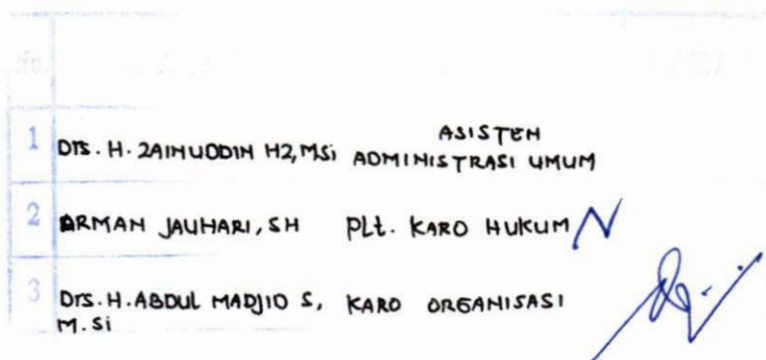 No.
1 Drs. H. ZAINUDDIN HZ, MSi ASISTEN ADMINISTRASI UMUM
2 ARMAN JAUHARI, SH Plt. KARO HUKUM
3 Drs. H. ABDUL MADJID S, M.Si KARO ORGANISASI